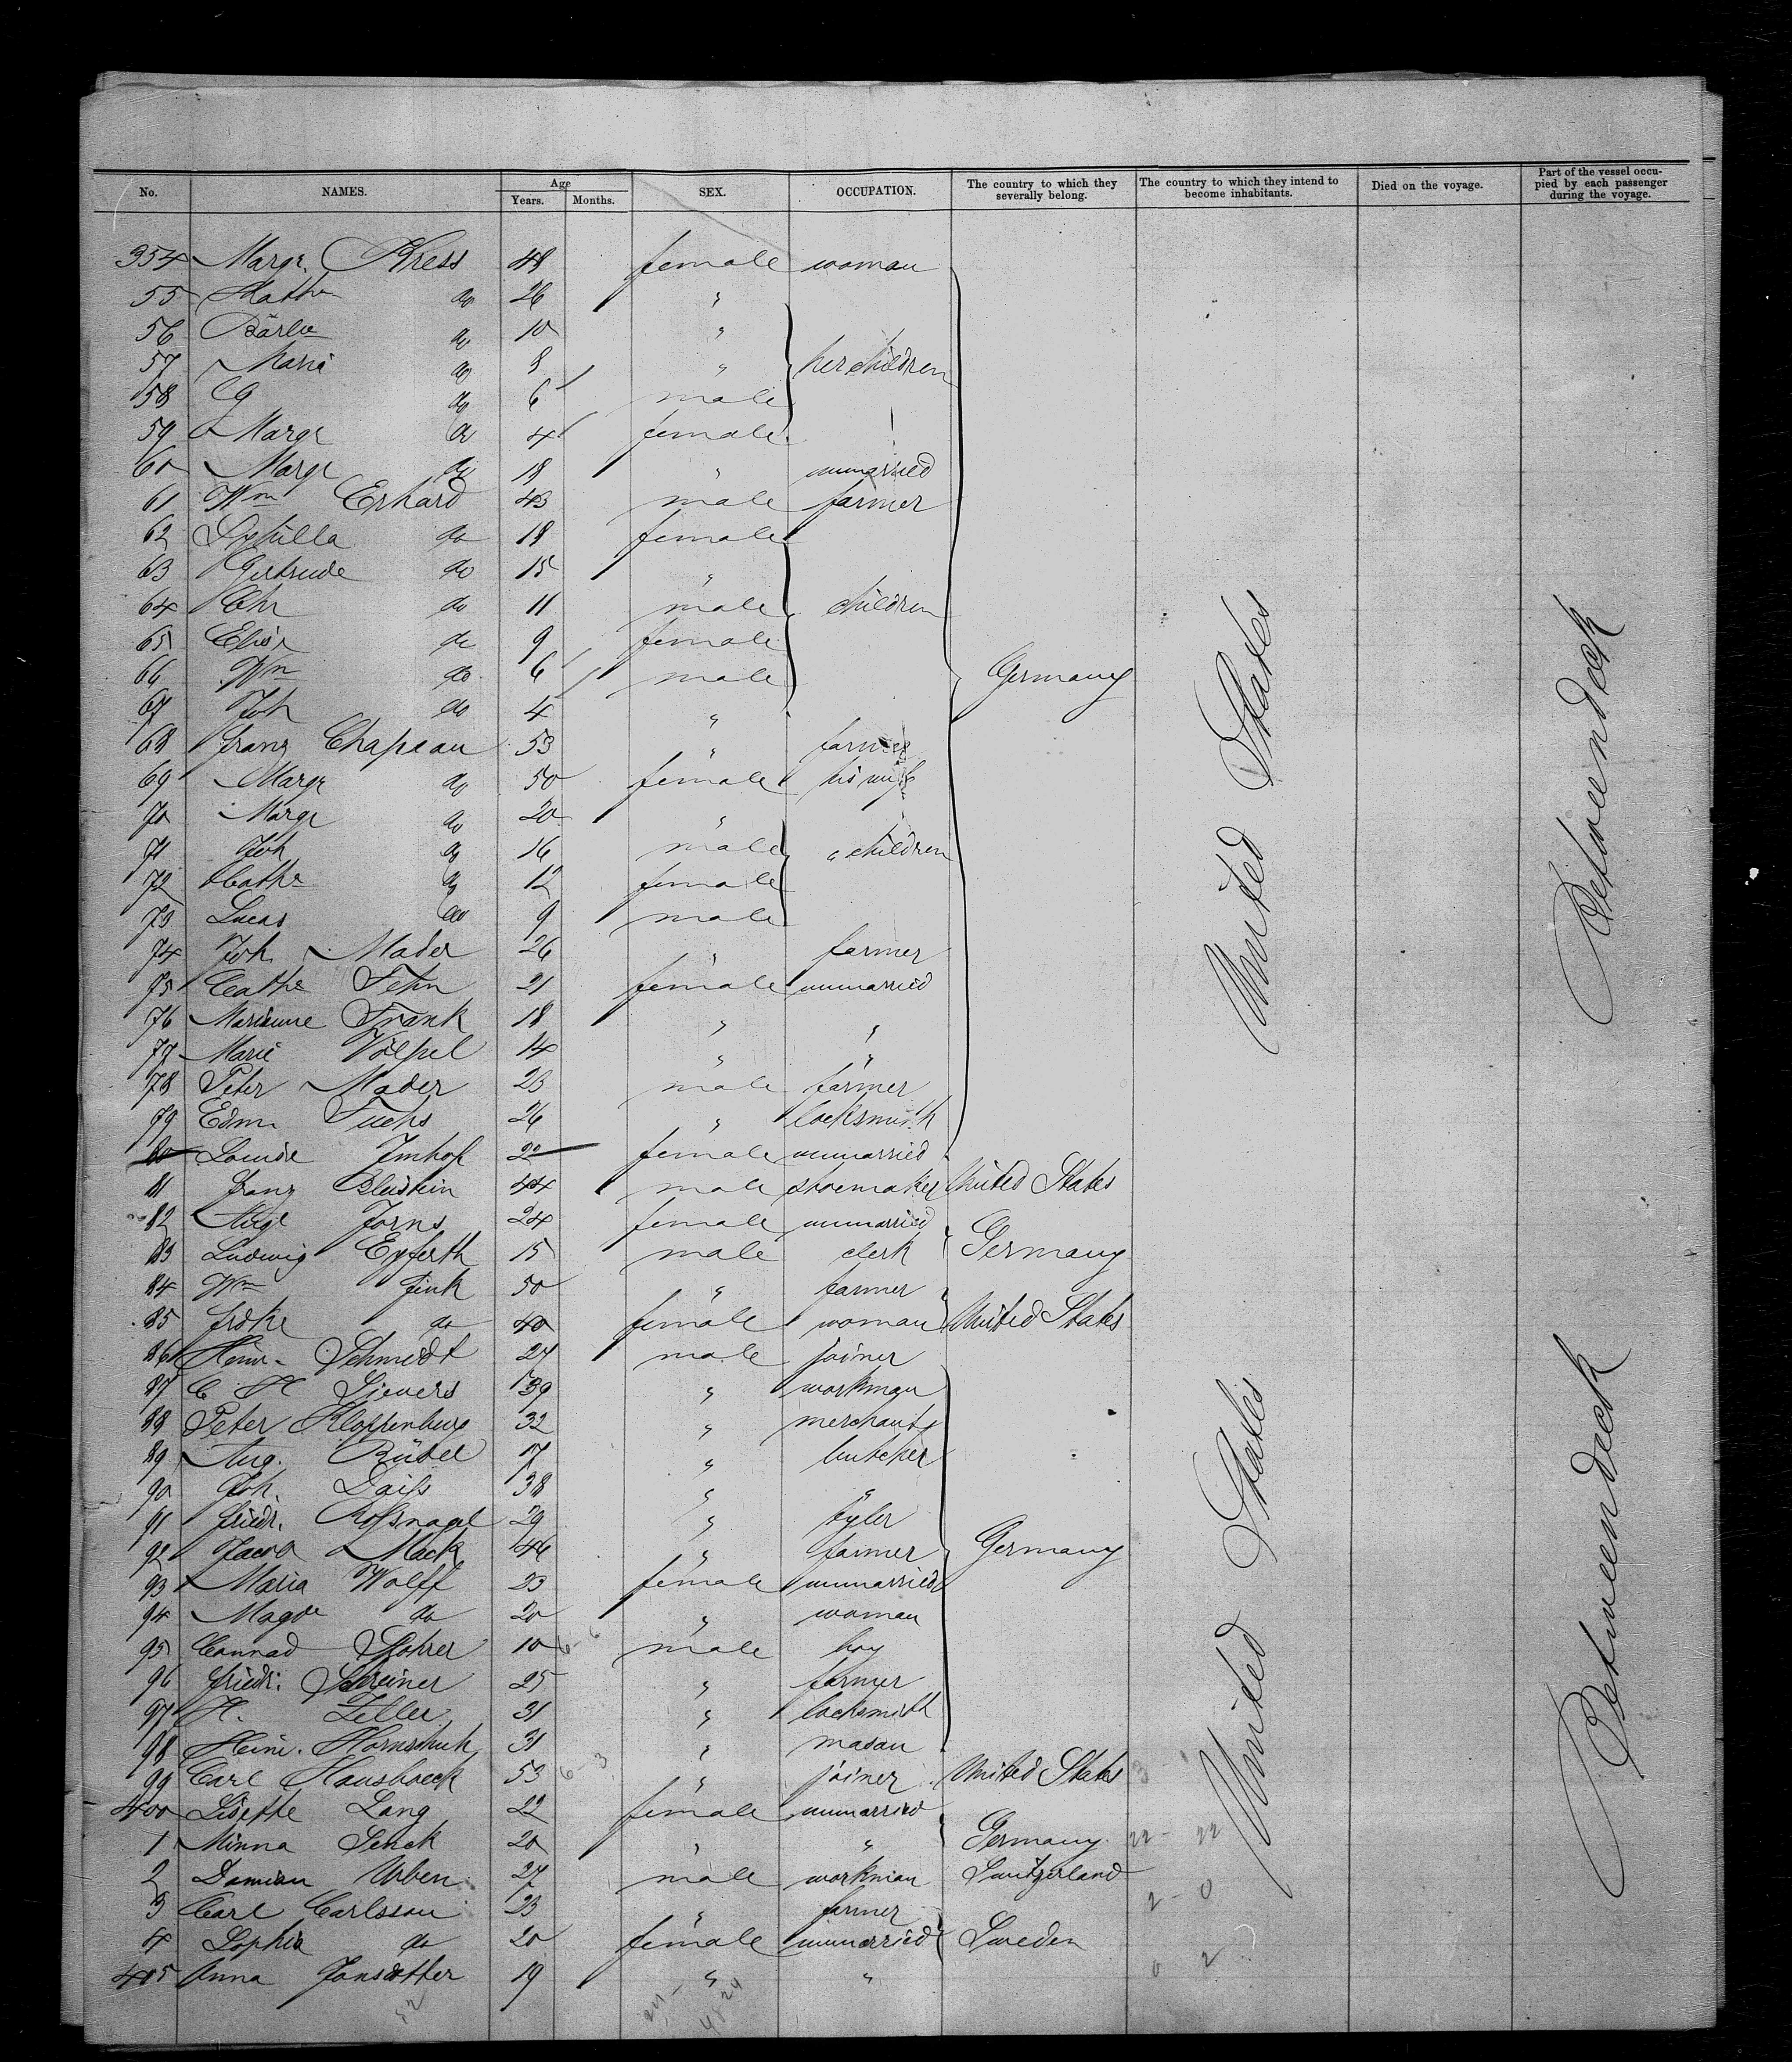 No. NAMES. Age Years. Months. SEX. OCCUPATION. The country to which they severally belong. The country to which they intend to become inhabitants. Died on the voyage. Part of the vessel occupied by each passenger during the voyage.
354 Margr. Kress 48 female woman
55 Kath do 26 "
56 Barb do 10 "
57 Maria do 8 " her children
58 G do 6 male
59 Margr do 4 female
60 Margr do 18 " unmarried
61 Wm Erhard 43 male farmer
62 Sybilla do 18 female
63 Gertrude do 15 "
64 Chr do 11 male children
65 Elise do 9 female
66 Wm do 6 male Germany
67 Joh do 4 "
68 Franz Chapeau 53 " farmer
69 Margr do 50 female his wife
70 Margr do 20 "
71 Joh do 16 male " children
72 Cathe do 12 female
73 Lucas do 9 male
74 Joh Mader 26 " farmer
75 Cathe Fehn 21 female unmarried
76 Marianne Frank 18 " "
77 Marie Völpel 14 " "
78 Peter Mader 23 male farmer
79 Edm. Fuchs 26 " locksmith
80 Louise Imhof 22 female unmarried
81 Franz Blustein 44 male shoemaker United States
82 Auge Jorns 24 female unmarried
83 Ludwig Eyferth 15 male clerk Germany
84 Wm Fink 50 " farmer
85 Frdke do 40 female woman United States
86 Heinr. Schmidt 27 male joiner
87 C H Sievers 39 " workman
88 Peter Kloppenburg 32 " merchant
89 Aug. Rüdel 17 " butcher
90 Joh. Daiss 38 " "
91 Friedr. Rossnagel 29 " tyler
92 Jacob Mack 46 " farmer Germany
93 Maria Wolff 23 female unmarried
94 Magde do 20 " woman
95 Connad Rohrer 10 male boy
96 Friedr. Schreiner 25 " farmer
97 H. Zeller 31 " locksmith
98 Heinr. Hornschuh 31 " mason
99 Carl Haushaeck 53 " joiner United States
400 Lisette Lang 22 female unmarried
1 Minna Senck 20 " " Germany
2 Damian Urben 27 male workman Switzerland
3 Carl Carlsson 23 " farmer
4 Sophia do 20 female unmarried Sweden
405 Anna Jonsdotter 19 " "
United States
United States
Betweendeck
Betweendeck